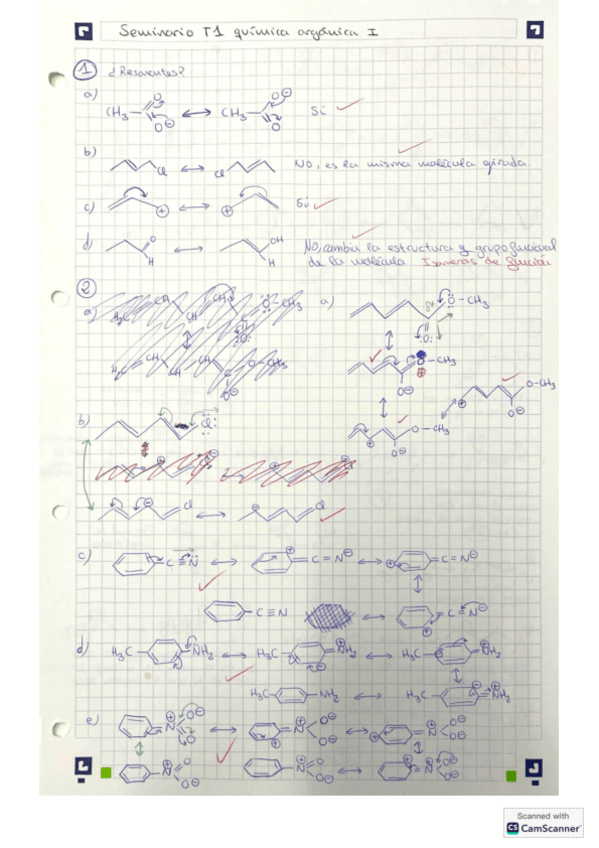 Seminario T1 química orgánica I
1 ¿Resonantes?
a) CH3 O O⊖ ↔ CH3 O⊖ O Sí
b) Cl ↔ Cl NO, es la misma molécula girada.
c) ⊕ ↔ ⊕ Sí
d) O H ↔ OH H No, cambia la estructura y grupo funcional
de la molécula Isómeros de función
2
a) O-CH3
:O:
O-CH3
⊕
O⊖
O-CH3
O⊖
⊕ O-CH3
O⊖
b) Cl
⊖ Cl ↔ ⊖ Cl
c) C≡N ↔ ⊕ C=N⊖ ↔ ⊕ C=N⊖
C≡N ↔ ⊕ C=N⊖
d) H3C NH2 ↔ H3C ⊕NH2 ⊖ ↔ H3C ⊕NH2
H3C NH2 ↔ H3C ⊕NH2
e) ⊕N O⊖ O ↔ ⊕N O⊖ O⊖ ⊕ ↔ ⊕ ⊕N O⊖ O⊖
⊕N O O⊖ ⊕N O O⊖ ↔ ⊕ ⊕N O⊖ O⊖
Scanned with
CS CamScanner